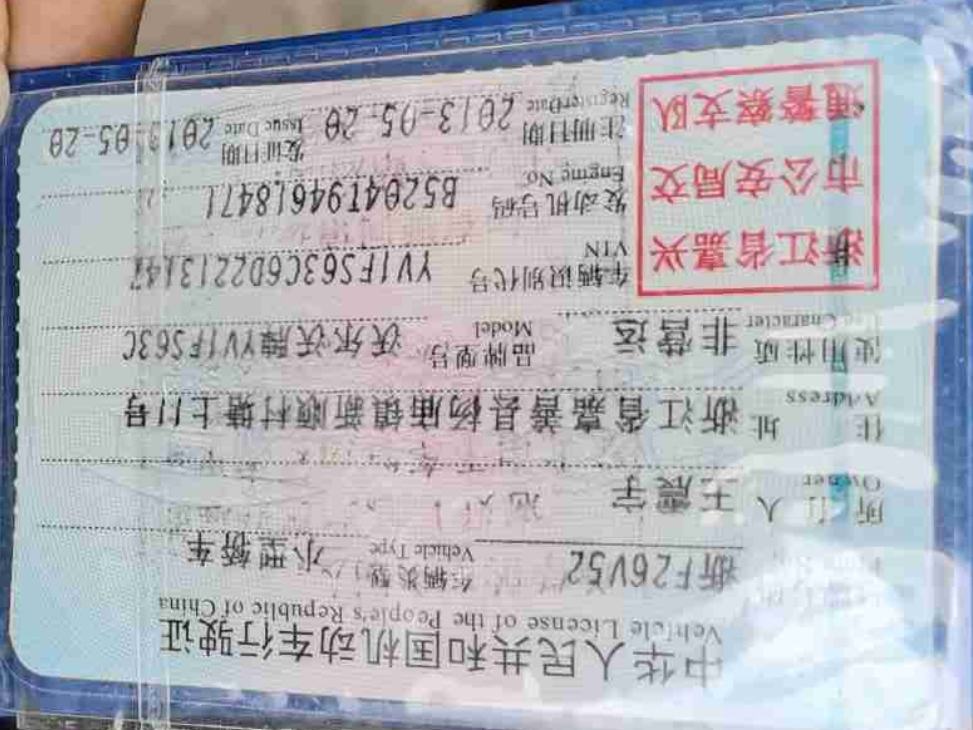 中华人民共和国机动车行驶证
Vehicle License of the People's Republic of China
浙F26V52 车辆类型 小型轿车
Vehicle Type
所有人 王震宇
Owner
住址 浙江省嘉善县杨庙镇新顺村塘上11号
Address
使用性质 非营运 品牌型号 沃尔沃牌YV1FS63C
Use Character Model
浙江省嘉兴
市公安局交
通警察支队
车辆识别代号 YV1FS63C6D2213147
VIN
发动机号码 B5204T94618471
Engine No.
注册日期 2013-05-20 发证日期 2013-05-20
Register Date Issue Date